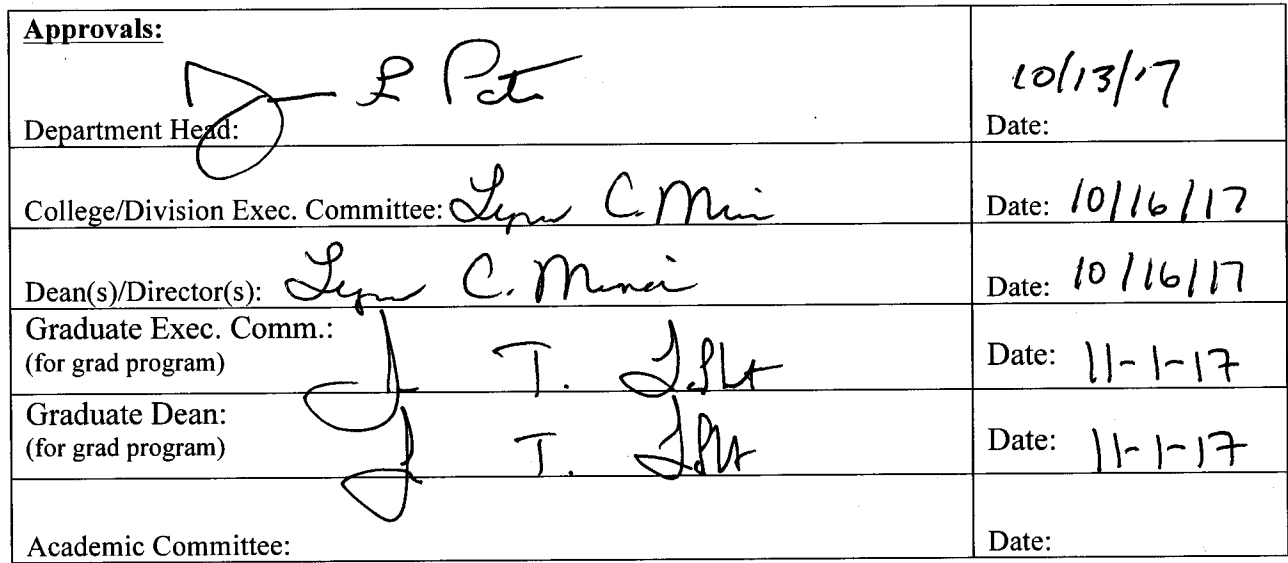 Approvals:
10/13/17
Department Head:
Date:
College/Division Exec. Committee: C.
Date: 10/16/17
Dean(s)/Director(s): C.
Date: 10/16/17
Graduate Exec. Comm.:
(for grad program)
T.
Date: 11-1-17
Graduate Dean:
(for grad program)
T.
Date: 11-1-17
Academic Committee:
Date: